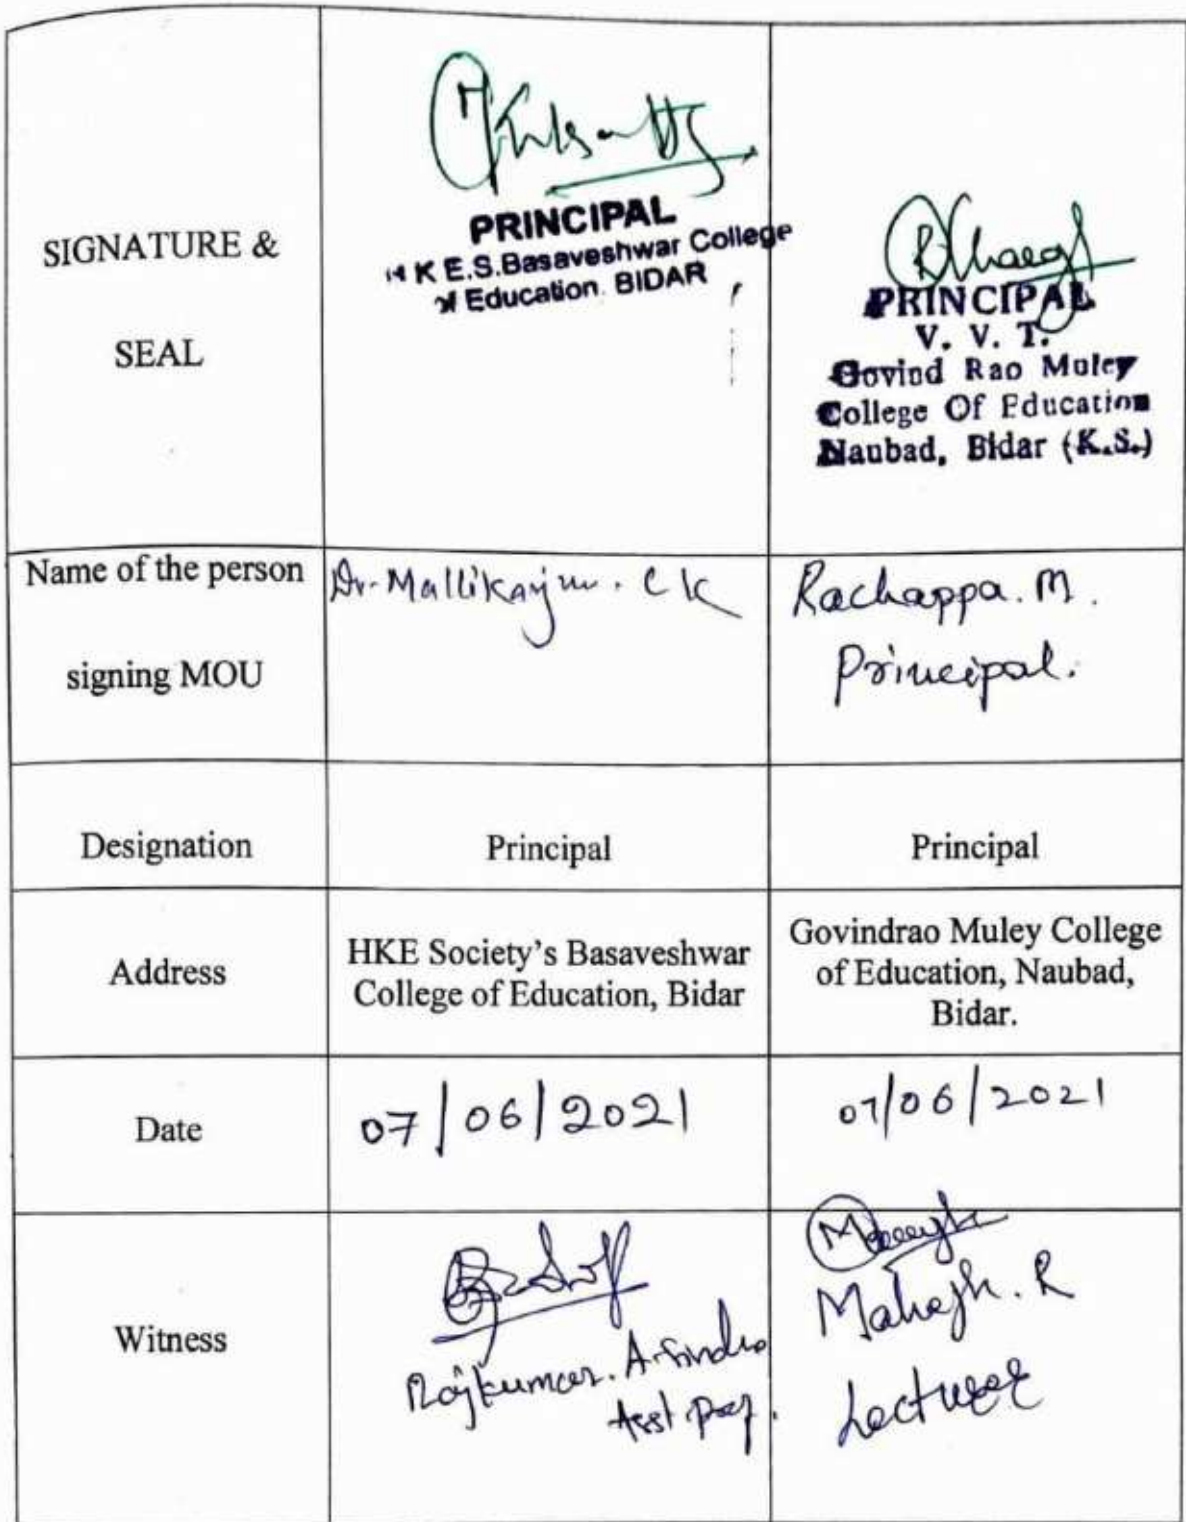 SIGNATURE &
SEAL
PRINCIPAL
H K E.S.Basaveshwar College
of Education. BIDAR
PRINCIPAL
V. V. T.
Govind Rao Muley
College Of Education
Naubad, Bidar (K.S.)
Name of the person
signing MOU
Dr. Mallikarjun. C K
Rachappa. M.
Principal.
Designation
Principal
Principal
Address
HKE Society's Basaveshwar
College of Education, Bidar
Govindrao Muley College
of Education, Naubad,
Bidar.
Date
07/06/2021
07/06/2021
Witness
Rajkumar. A.
Asst prof.
Mahesh. R
Lecturer